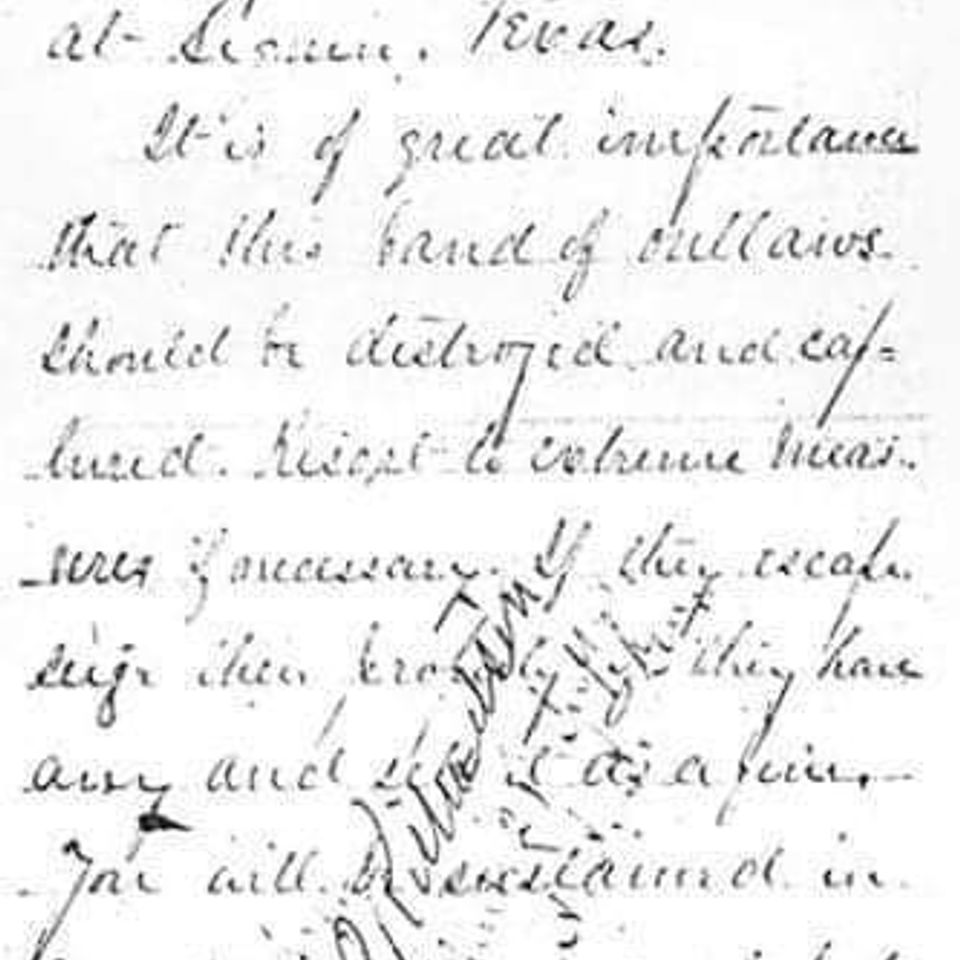 at Seguin, Texas.
It is of great importance
that this band of outlaws
should be destroyed and cap=
tured. Resort to extreme meas-
ures if necessary. If they escape
seize their property if they have
any and sell it as a fine.
You will be sustained in